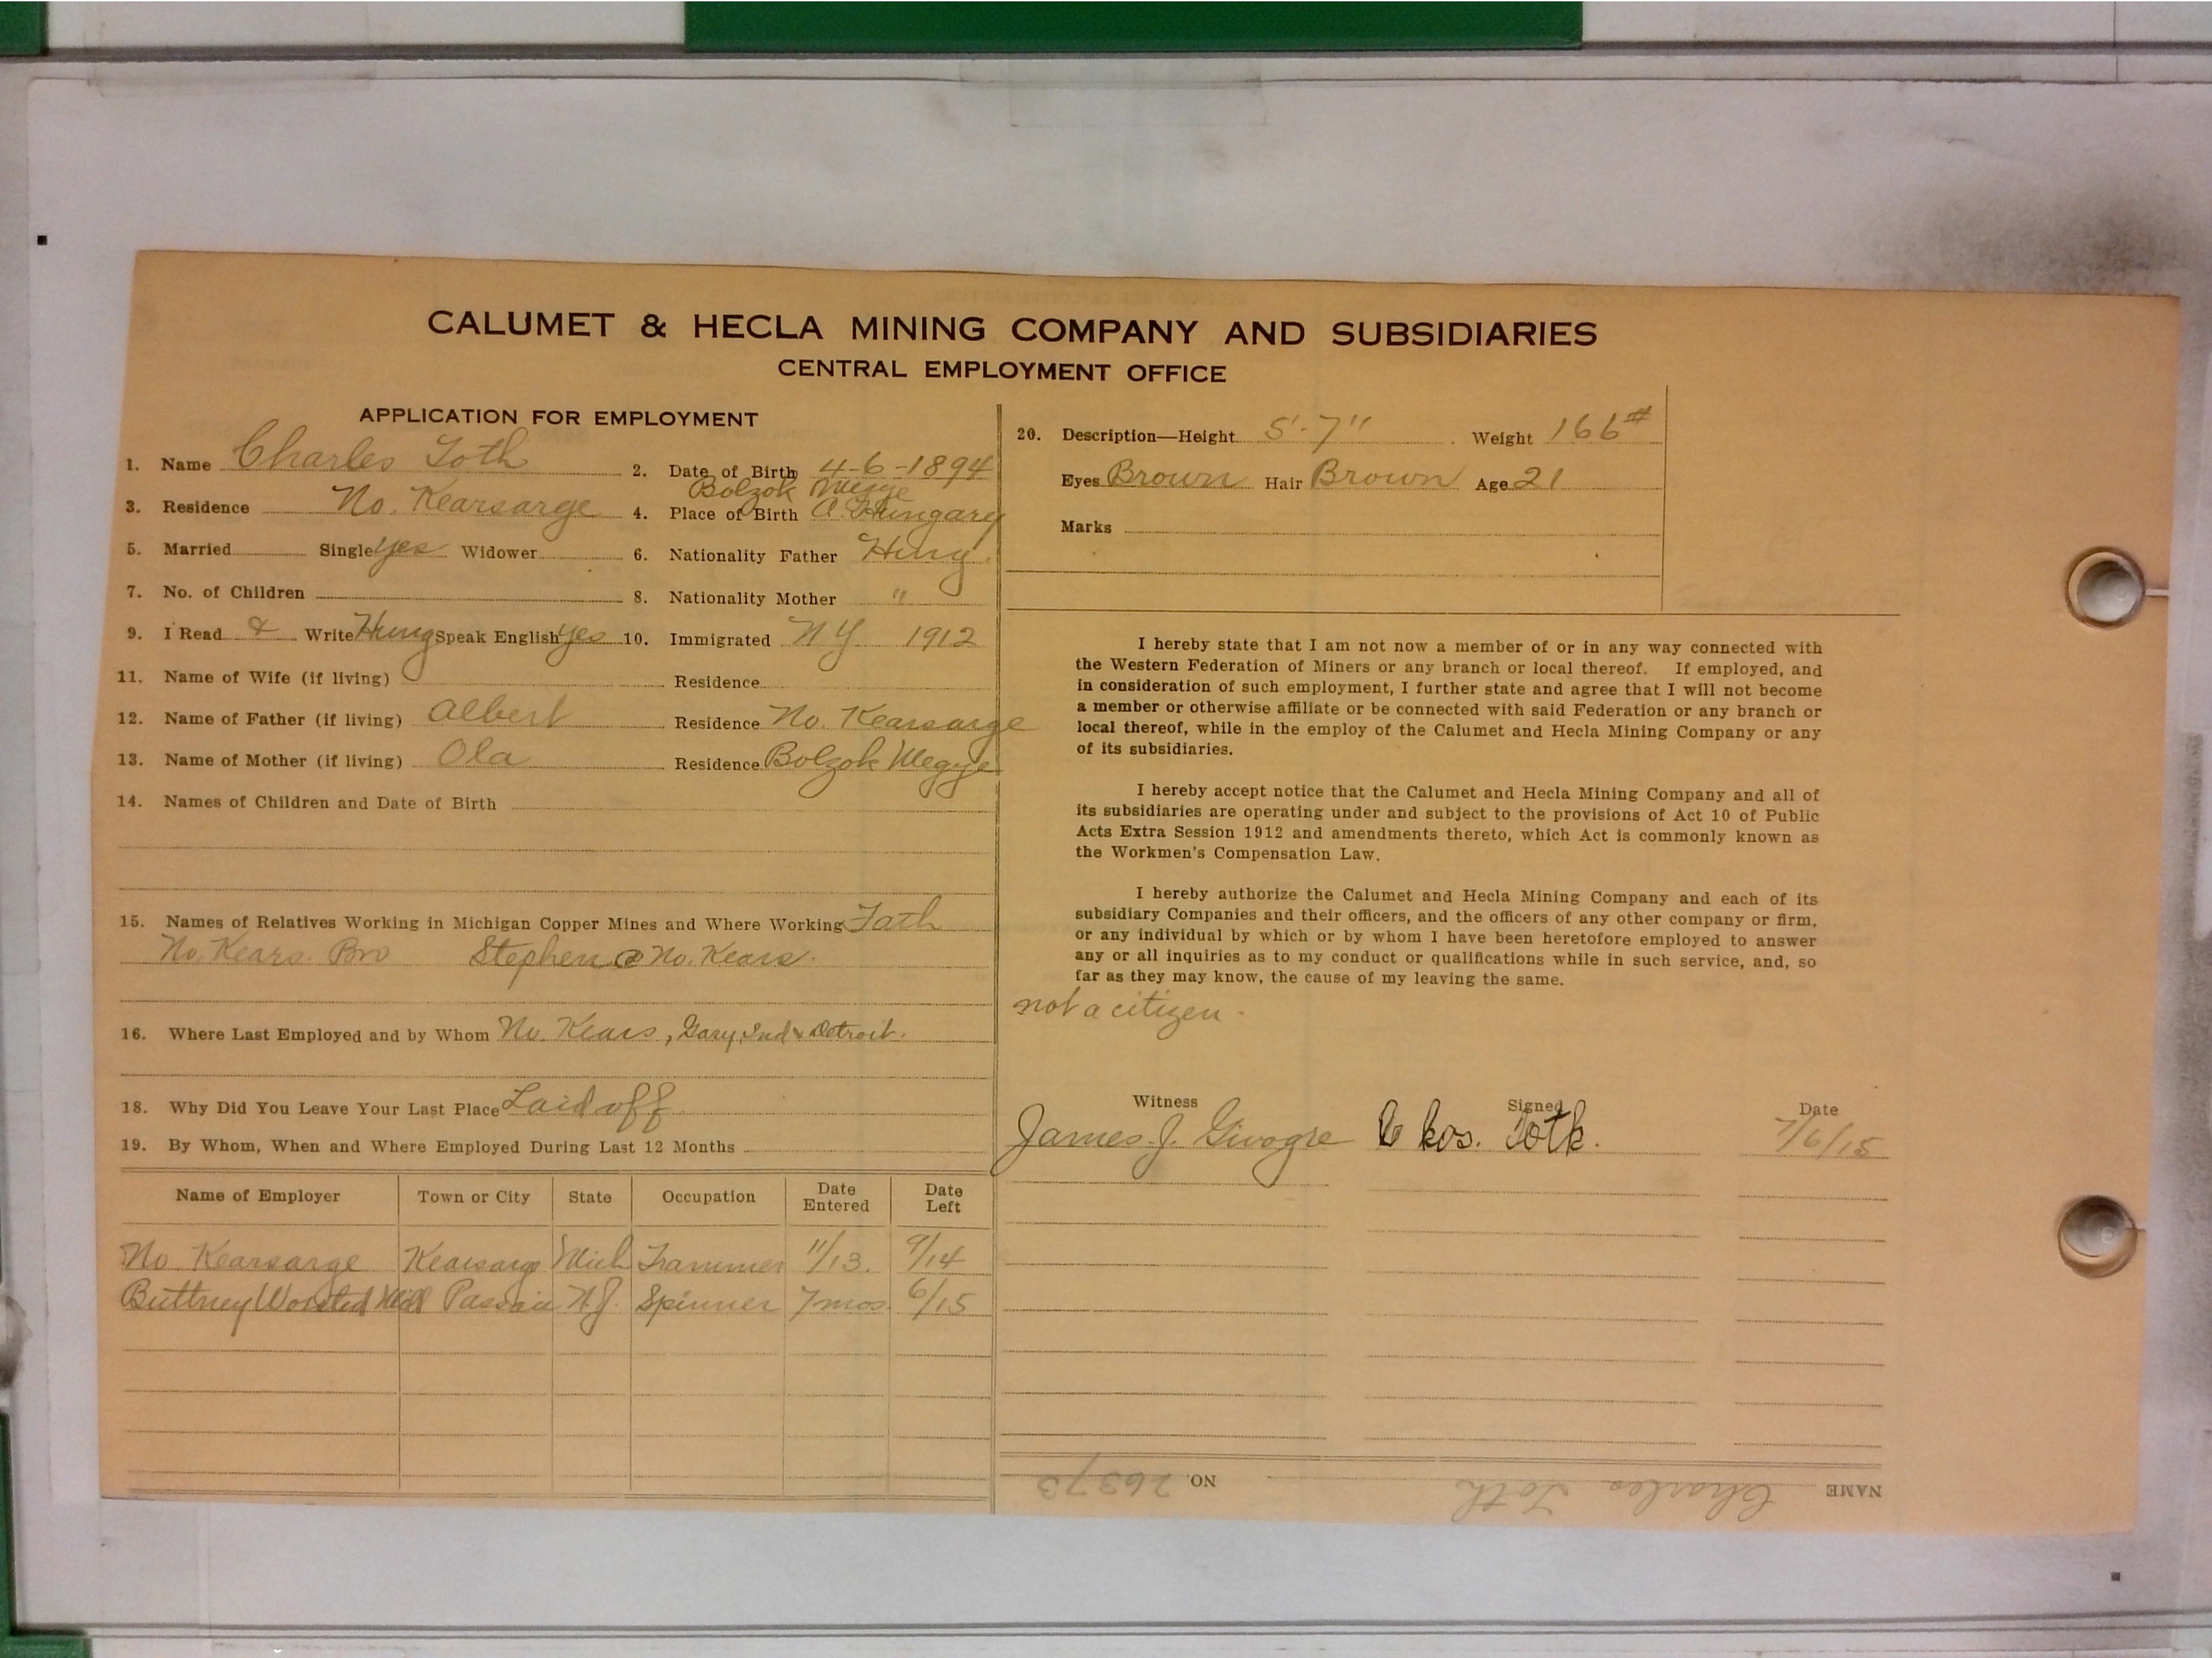 CALUMET & HECLA MINING COMPANY AND SUBSIDIARIES
CENTRAL EMPLOYMENT OFFICE
APPLICATION FOR EMPLOYMENT
1. Name Charles Toth 2. Date of Birth 4-6-1894
Bolzok Megye
3. Residence No. Kearsarge 4. Place of Birth A. Hungary
5. Married Single yes Widower 6. Nationality Father Hung.
7. No. of Children 8. Nationality Mother "
9. I Read & Write Hung Speak English yes 10. Immigrated N Y 1912
11. Name of Wife (if living) Residence
12. Name of Father (if living) Albert Residence No. Kearsarge
13. Name of Mother (if living) Ola Residence Bolzok Megye
14. Names of Children and Date of Birth
15. Names of Relatives Working in Michigan Copper Mines and Where Working Fath
No. Kears. Bro Stephen @ No. Kears.
16. Where Last Employed and by Whom No. Kears, Gary, Ind & Detroit.
18. Why Did You Leave Your Last Place Laid off
19. By Whom, When and Where Employed During Last 12 Months
Name of Employer Town or City State Occupation Date Entered Date Left
No Kearsarge Kearsarge Mich Trammer 11/13. 9/14
Buttney Worsted Mill Passaic N.J. Spinner 7 mos. 6/15
20. Description—Height 5'-7" Weight 166#
Eyes Brown Hair Brown Age 21
Marks
I hereby state that I am not now a member of or in any way connected with
the Western Federation of Miners or any branch or local thereof. If employed, and
in consideration of such employment, I further state and agree that I will not become
a member or otherwise affiliate or be connected with said Federation or any branch or
local thereof, while in the employ of the Calumet and Hecla Mining Company or any
of its subsidiaries.
I hereby accept notice that the Calumet and Hecla Mining Company and all of
its subsidiaries are operating under and subject to the provisions of Act 10 of Public
Acts Extra Session 1912 and amendments thereto, which Act is commonly known as
the Workmen's Compensation Law.
I hereby authorize the Calumet and Hecla Mining Company and each of its
subsidiary Companies and their officers, and the officers of any other company or firm,
or any individual by which or by whom I have been heretofore employed to answer
any or all inquiries as to my conduct or qualifications while in such service, and, so
far as they may know, the cause of my leaving the same.
not a citizen.
Witness Signed Date
James J. Toth. 7/6/15
NAME Charles Toth NO. 26373